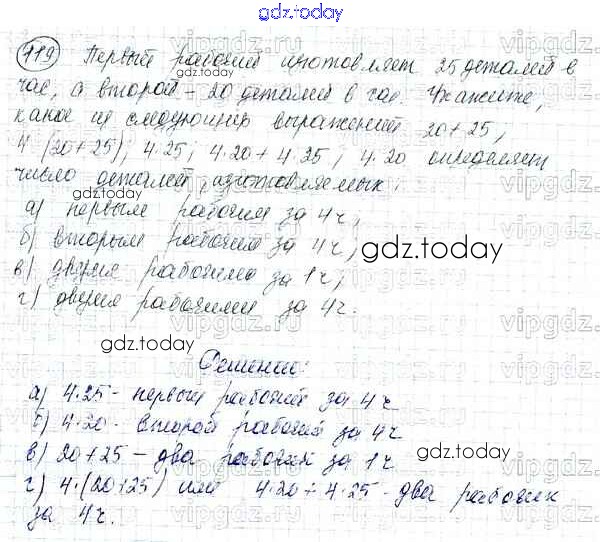 gdz.today
719 Первый рабочий изготовляет 25 деталей в
час, а второй - 20 деталей в час. Укажите,
какое из следующих выражений 20+25,
4·(20+25); 4·25; 4·20+4·25; 4·20 определяет
число деталей, изготовляемых:
а) первым рабочим за 4ч;
б) вторым рабочим за 4ч;
в) двумя рабочими за 1ч;
г) двумя рабочими за 4ч.
Решение:
а) 4·25 - первый рабочий за 4ч
б) 4·20 - второй рабочий за 4ч
в) 20+25 - два рабочих за 1ч
г) 4·(20+25) или 4·20+4·25 - два рабочих
за 4ч.
gdz.today
gdz.today
gdz.today
gdz.today
gdz.today